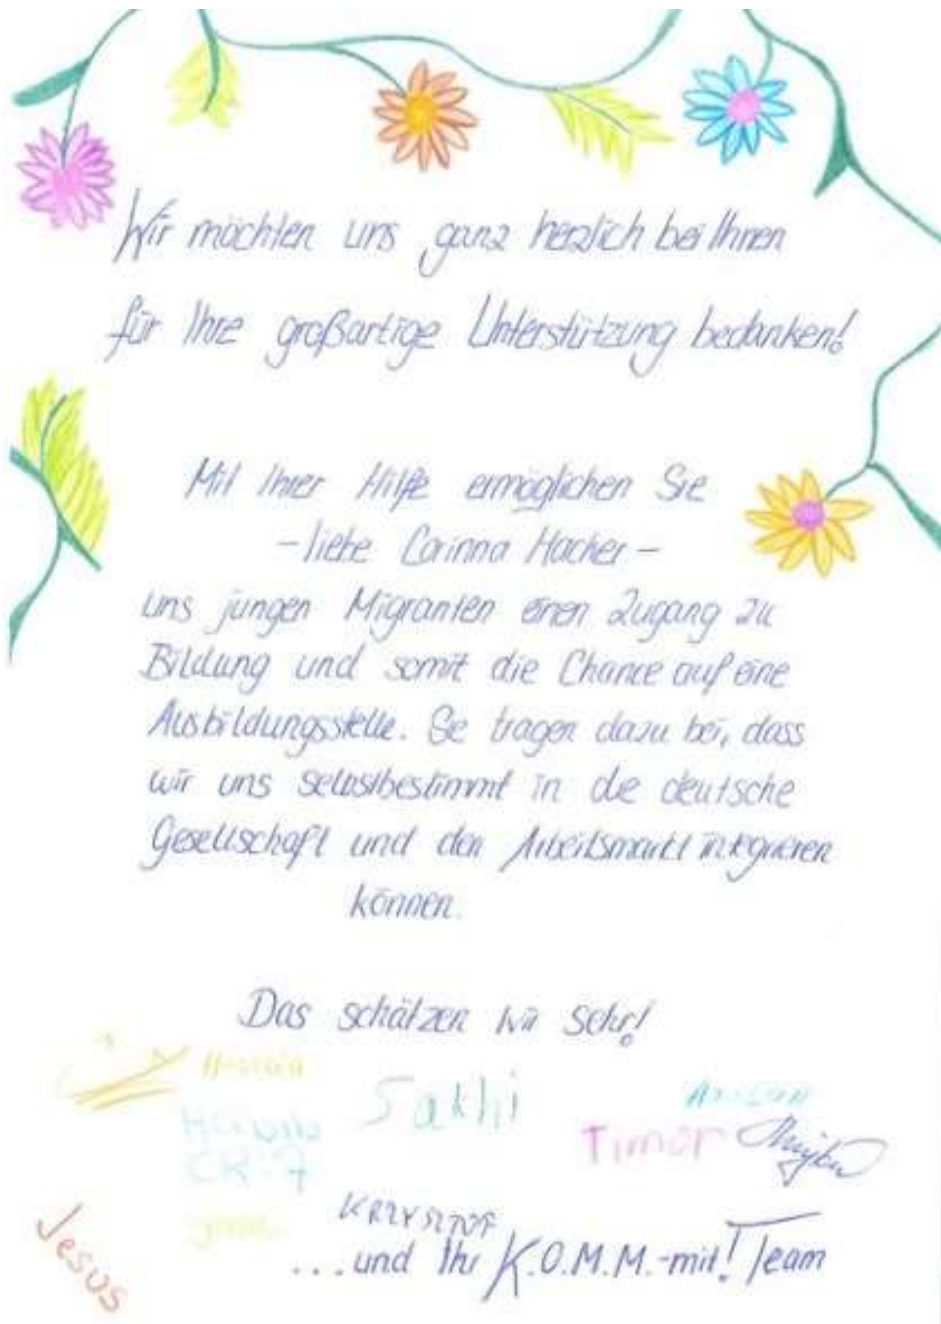 Wir möchten uns ganz herzlich bei Ihnen
für Ihre großartige Unterstützung bedanken!
Mit Ihrer Hilfe ermöglichen Sie
- liebe Corinna Hacker -
uns jungen Migranten einen Zugang zu
Bildung und somit die Chance auf eine
Ausbildungsstelle. Sie tragen dazu bei, dass
wir uns selbstbestimmt in die deutsche
Gesellschaft und den Arbeitsmarkt integrieren
können.
Das schätzen wir sehr!
Sakhi
Timor
CR-7
Krzysztof
Jesus
...und Ihr K.O.M.M.-mit! Team